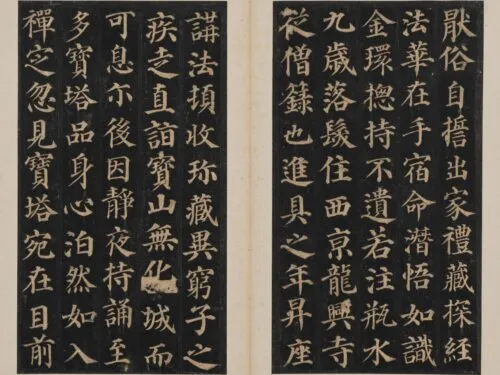 厭俗自誓出家禮藏探經
法華在手宿命潛悟如識
金環揔持不遺若注瓶水
九歲落髮住西京龍興寺
從僧籙也進具之年昇座
講法頓收珎藏異窮子之
疾走直詣寶山無化城而
可息尒後因靜夜持誦至
多寶塔品身心泊然如入
禪定忽見寶塔宛在目前